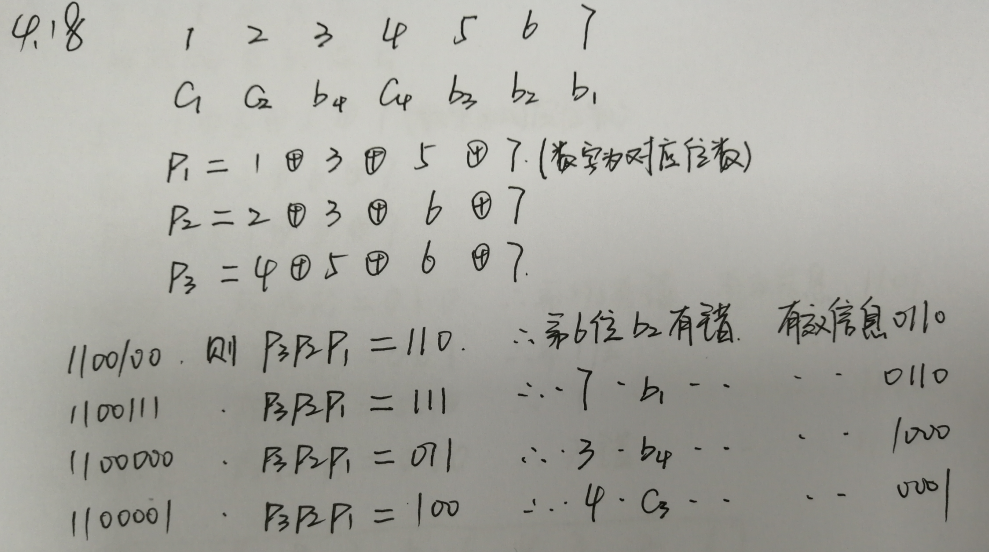 4.18 1 2 3 4 5 6 7
C₁ C₂ b₄ C₄ b₃ b₂ b₁
P₁ = 1 ⊕ 3 ⊕ 5 ⊕ 7.(数字为对应位数)
P₂ = 2 ⊕ 3 ⊕ 6 ⊕ 7
P₃ = 4 ⊕ 5 ⊕ 6 ⊕ 7.
1100100. 则 P₃P₂P₁ = 110. ∴第6位b₂有错. 有效信息0110
1100111 · P₃P₂P₁ = 111 ∴·· 7 · b₁ ·· ·· 0110
1100000 · P₃P₂P₁ = 011 ∴· 3 · b₄ ·· ·· 1000
1100001 · P₃P₂P₁ = 100 ∴·· 4 · C₃ ·· ·· 0001